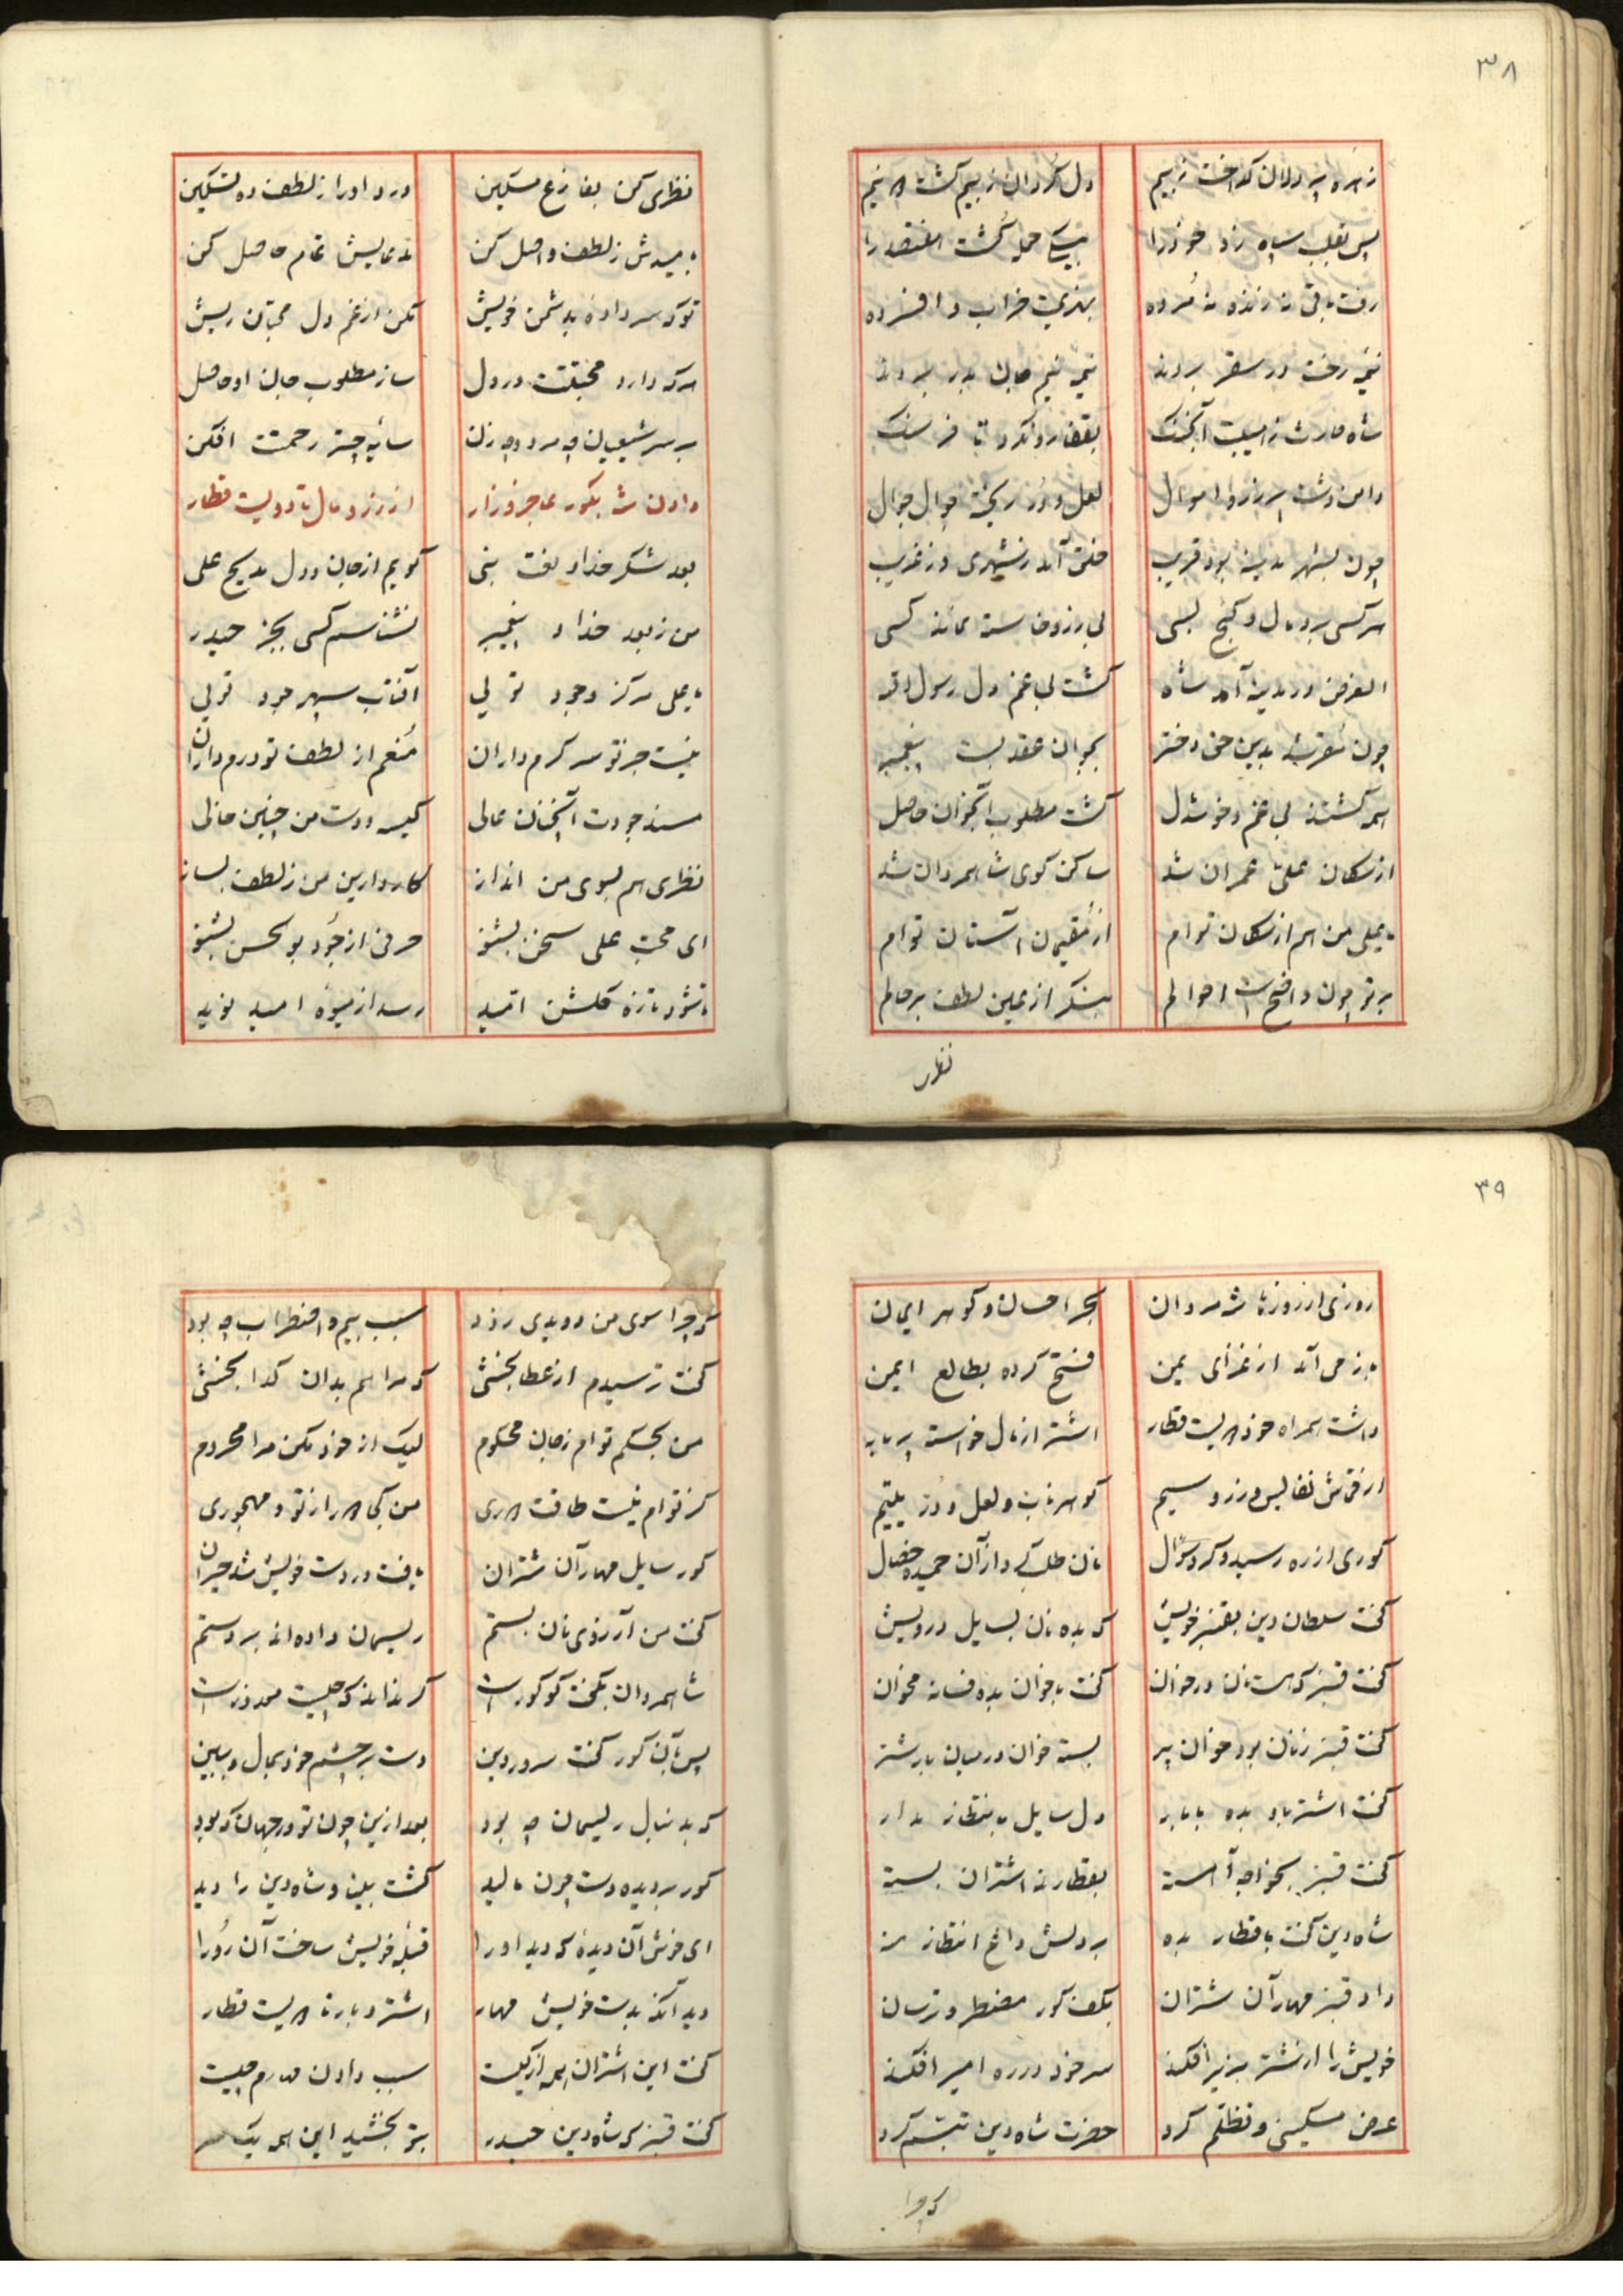 ۳۸
زهره پر دلان گداخت ز بیم دل گردان ز بیم گشت دو نیم
پس بقلب سپاه زد خود را بیکی حمله کشت را
رفت باقی نه زنده نه مرده بهزیمت خراب و افسرده
نیمه رخت در سقر بردند نیمه نیم جان بدر بردند
شاه غازی ز هیبت آهنگ بقفا رو نکرد تا فرسنگ
دامن دشت پر زر و اموال لعل و در ریخته جوال جوال
چون بشهر مدینه بود قریب خلق آمد ز شهری و ز غریب
هر کسی برد مال و گنج بسی بی زر و خواسته نماند کسی
الغرض در مدینه آمد شاه گشت بی غم دل رسول اله
چون مقرب بدین حق دختر بجوان عقد بست پیغمبر
همه گشتند بی غم و خوشدل گشت مطلوب آنجوان حاصل
از سگان علی عمران شد ساکن کوی شاهمردان شد
یا علی من هم از سگان توام از مقیمان آستان توام
بر تو چون واضح است احوالم بنگر از عین لطف بر حالم
نظری
نظری کن بفارغ مسکین درد او را ز لطف ده تسکین
بامیدش ز لطف واصل کن مدعایش تمام حاصل کن
تو که سر داده بدشمن خویش مکن از غم دل محبان ریش
هر که دارد محبتت در دل ساز مطلوب جان او حاصل
بر سر شیعیان چه مرد و چه زن سایه چتر رحمتت افکن
دادن شه بکور عاجز و زار از زر و مال تا دویست قطار
بعد شکر خدا و نعت نبی گویم از جان و دل مدیح علی
من ز بعد خدا و پیغمبر نشناسم کسی بجز حیدر
یا علی مرکز وجود توئی آفتاب سپهر جود توئی
نیست جز تو سر کرم داران منعم از لطف تو درم داران
مسند جودت آنچنان عالی کیسه و دست من چنین خالی
نظری هم بسوی من انداز کار دارین من ز لطف بساز
ای محب علی سخن بشنو حرفی از جود بو الحسن بشنو
تا شود تازه گلشن امید رسد از میوه امید نوید
۳۹
روزی از روزها شه مردان بحر احسان و گوهر ایمان
باز می آمد از غزای یمن فتح کرده بطالع ایمن
داشت همراه خود دویست قطار اشتر از مال خواسته پر بار
از قماش نفایس و زر و سیم گوهر ناب و لعل و در یتیم
کوری از ره رسید و کرد سؤال نان طلب کرد از آن حمیده خصال
گفت سلطان دین بقنبر خویش که بده نان بسایل درویش
گفت قنبر که هست نان در خوان گفت با خوان بده فسانه مخوان
گفت قنبر ز نان بود خوان پر بسته خوان در میان بار شتر
گفت اشتر باو بده با بار دل سایل بانتظار مدار
گفت قنبر بخواجه آهسته بقطارند اشتران بسته
شاه دین گفت با قطار بده بر دلش داغ انتظار منه
داد قنبر مهار آن شتران بکف کور مضطر و ترسان
خویش را از شتر بزیر افکند سر خود در ره امیر افکند
عرض مسکینی و تظلم کرد حضرت شاه دین تبسم کرد
که چرا
که چرا سوی من دویدی زود سبب بیم و اضطراب چه بود
گفت ترسیدم از عطابخشی که مرا هم بدان گدا بخشی
من بحکم توام ز جان محکوم لیک از خود مکن مرا محروم
کز توام نیست طاقت دوری من کجا دور از تو و مهجوری
کور سایل مهار آن شتران یافت در دست خویش شد حیران
گفت من آرزوی نان بستم ریسمان داده اند بر دستم
شاهمردان بگفت کو کور است گر نداند که چیست معذور است
پس بآن کور گفت سرور دین دست بر چشم خود بمال و ببین
که بدنبال ریسمان چه بود بعد ازین چون تو در جهان که بود
کور بر دیده دست چون مالید گشت بینا و شاه دین را دید
ای خوش آن دیده که دید او را قبله خویش ساخت آن رو را
دید آنکه بدست خویش مهار اشتر و بار تا دویست قطار
گفت این اشتران همه از کیست سبب دادن مهارم چیست
گفت قنبر که شاه دین حیدر بتو بخشید این همه یکسر